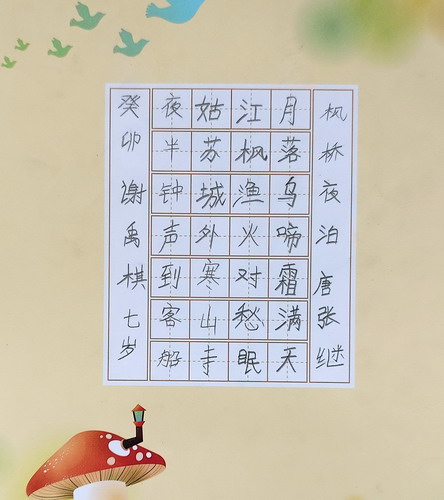 枫桥夜泊 唐 张继
月落乌啼霜满天
江枫渔火对愁眠
姑苏城外寒山寺
夜半钟声到客船
癸卯 谢禹棋 七岁